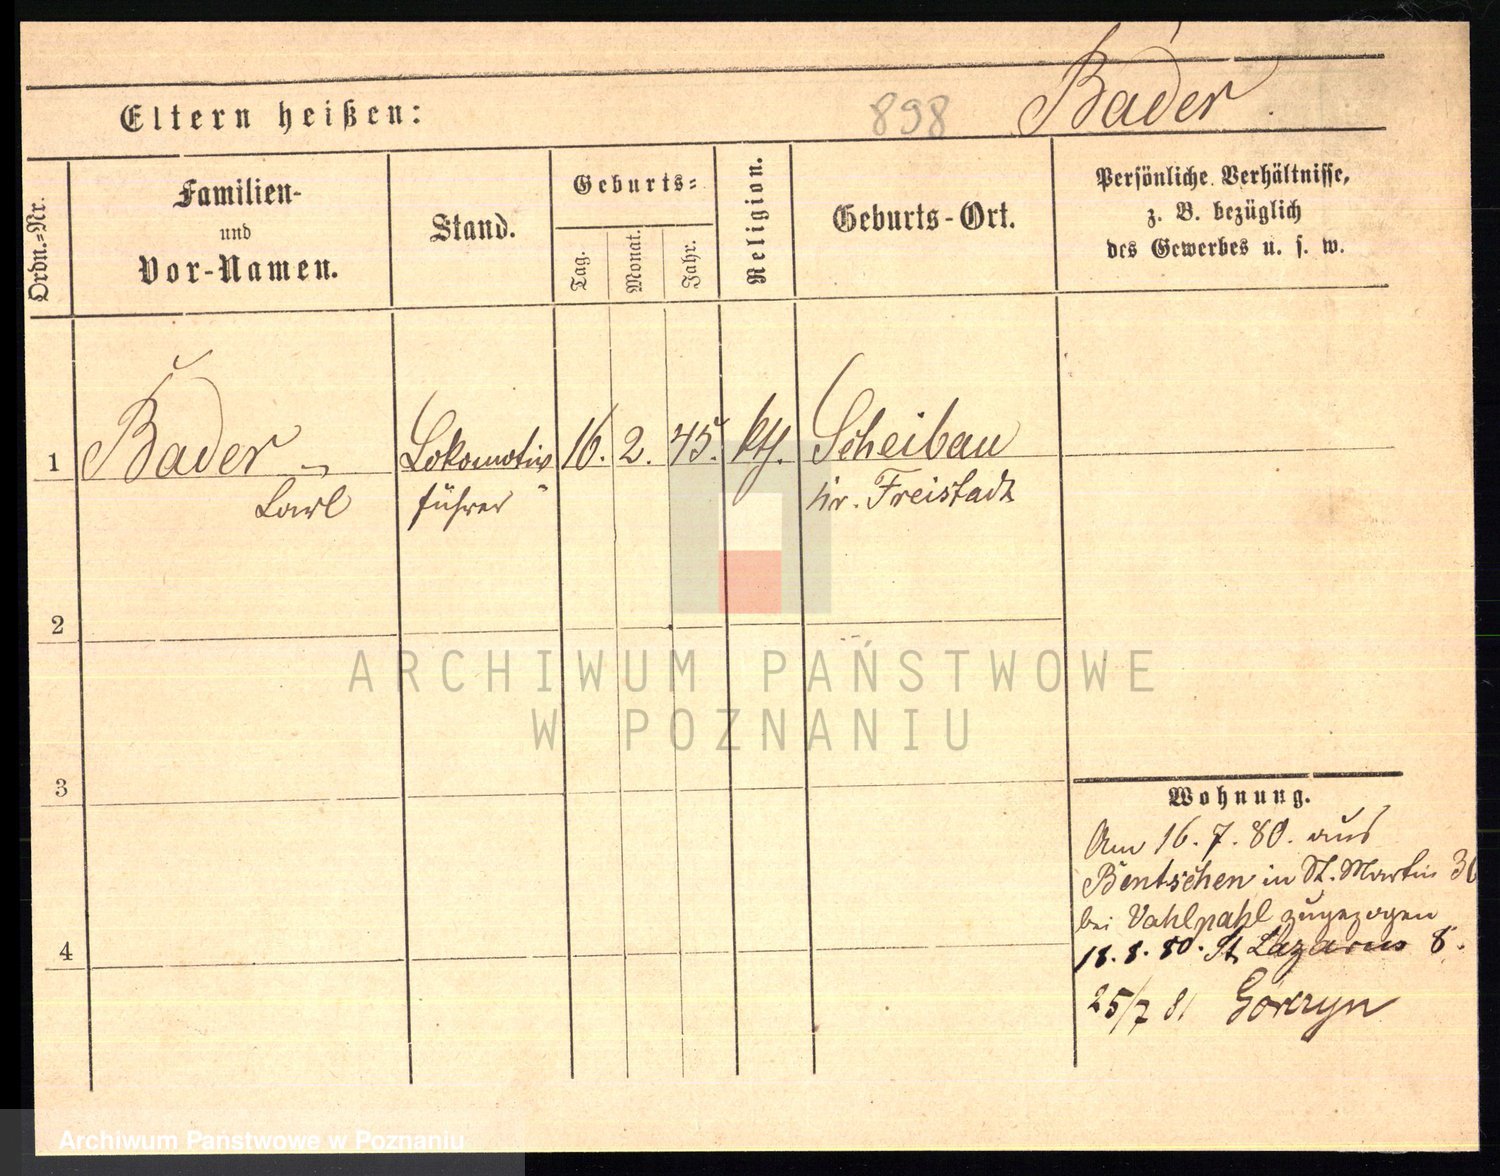 Eltern heißen:
898
Bader
Ordn.=Nr.
Familien-
und
Vor-Namen.
Stand.
Geburts=
Tag.
Monat.
Jahr.
Religion.
Geburts-Ort.
Persönliche Verhältnisse,
z. B. bezüglich
des Gewerbes u. s. w.
1
Bader
Carl
Lokomotiv
führer
16.
2.
45.
kth.
Scheibau
Kr. Freistadt
2
3
4
Wohnung.
Am 16. 7. 80. aus
Bentschen in St. Martin 36
bei Vahlpahl zugezogen
18. 8. 80. St. Lazarus 8.
25/7 81 Gorczyn
ARCHIWUM PAŃSTWOWE
W POZNANIU
Archiwum Państwowe w Poznaniu